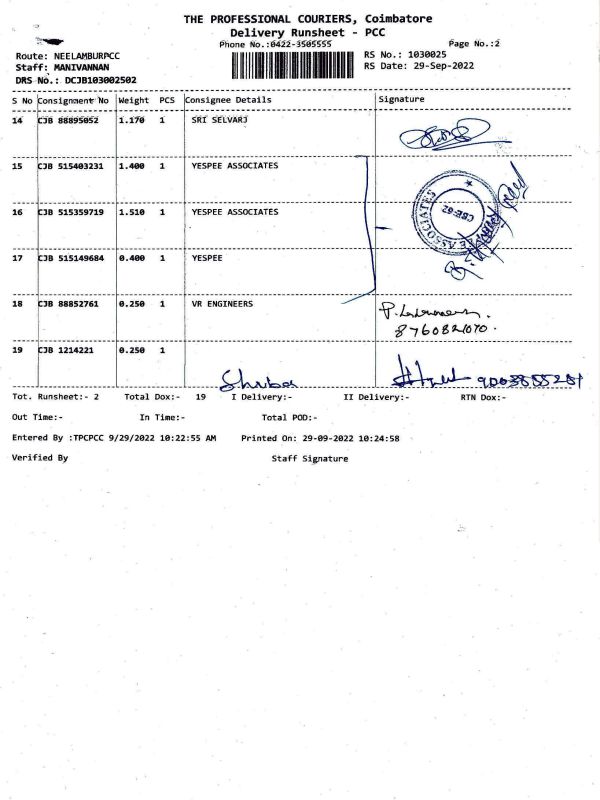 THE PROFESSIONAL COURIERS, Coimbatore
Delivery Runsheet - PCC
Phone No.:0422-3505555 Page No.:2
Route: NEELAMBURPCC RS No.: 1030025
Staff: MANIVANNAN RS Date: 29-Sep-2022
DRS No.: DCJB103002502
S No Consignment No Weight PCS Consignee Details Signature
14 CJB 88895052 1.170 1 SRI SELVARJ
15 CJB 515403231 1.400 1 YESPEE ASSOCIATES
16 CJB 515359719 1.510 1 YESPEE ASSOCIATES
ASSOCIATES
CBE-62
17 CJB 515149684 0.400 1 YESPEE
18 CJB 88852761 0.250 1 VR ENGINEERS
8760821070.
19 CJB 1214221 0.250 1
Tot. Runsheet:- 2 Total Dox:- 19 I Delivery:- II Delivery:- RTN Dox:-
Out Time:- In Time:- Total POD:-
Entered By :TPCPCC 9/29/2022 10:22:55 AM Printed On: 29-09-2022 10:24:58
Verified By Staff Signature